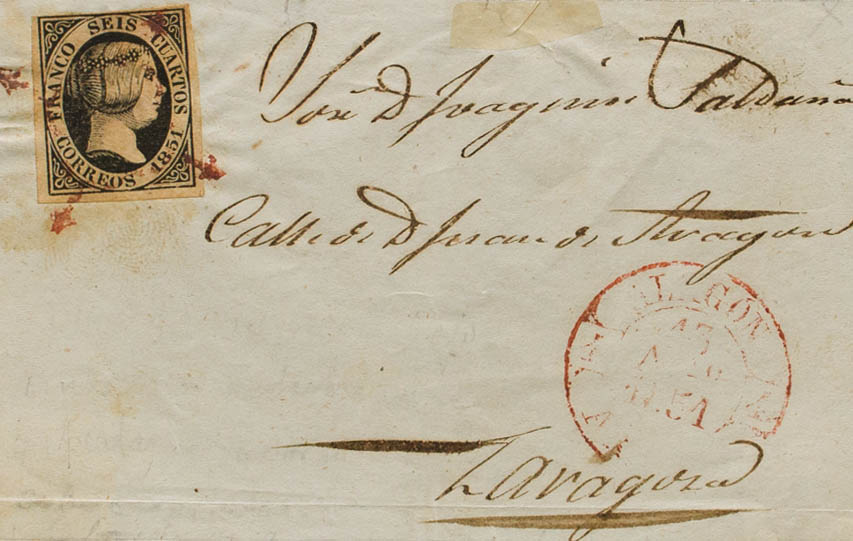 FRANCO SEIS CUARTOS
CORREOS 1851
Sor. D Joaquin Saldaña
Calle de D Juan de Aragon
ALAGON
17
1851
Zaragoza